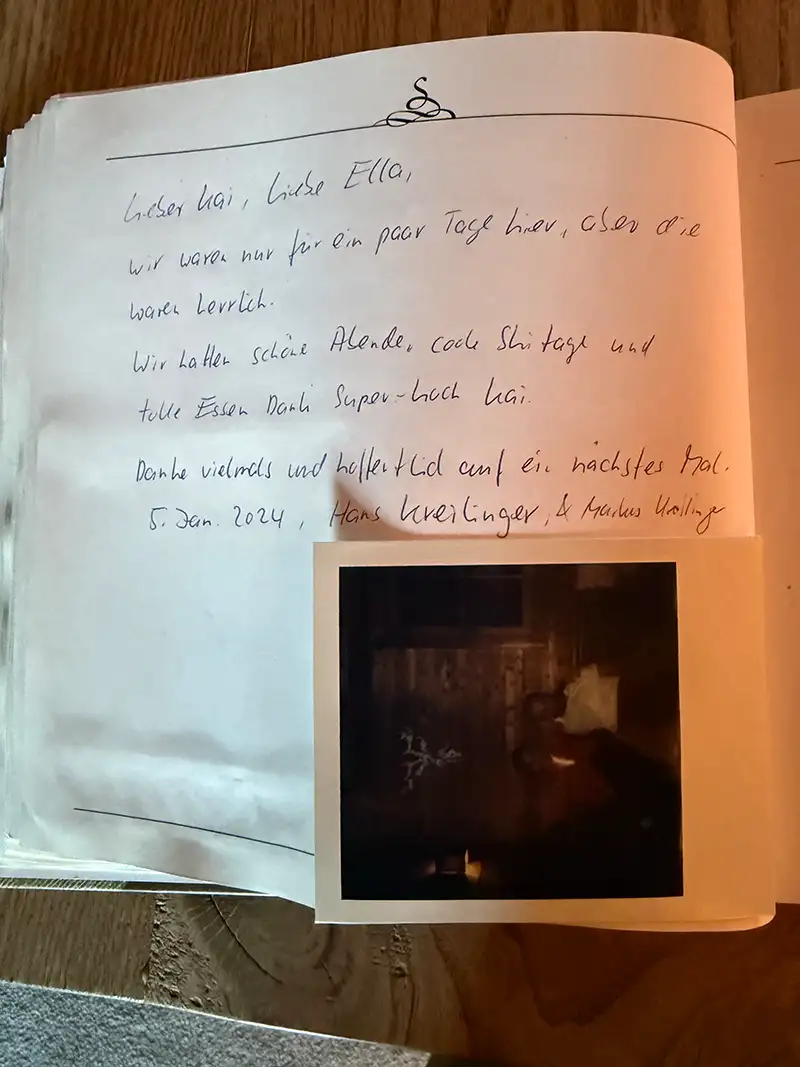 S
Lieber Kai, Liebe Ella,
wir waren nur für ein paar Tage hier, aber die
waren herrlich.
Wir hatten schöne Abende, coole Skitage und
tolle Essen Dank Super-Koch Kai.
Danke vielmals und hoffentlich auf ein nächstes Mal.
5. Jan. 2024, Hans Kreilinger, & Markus